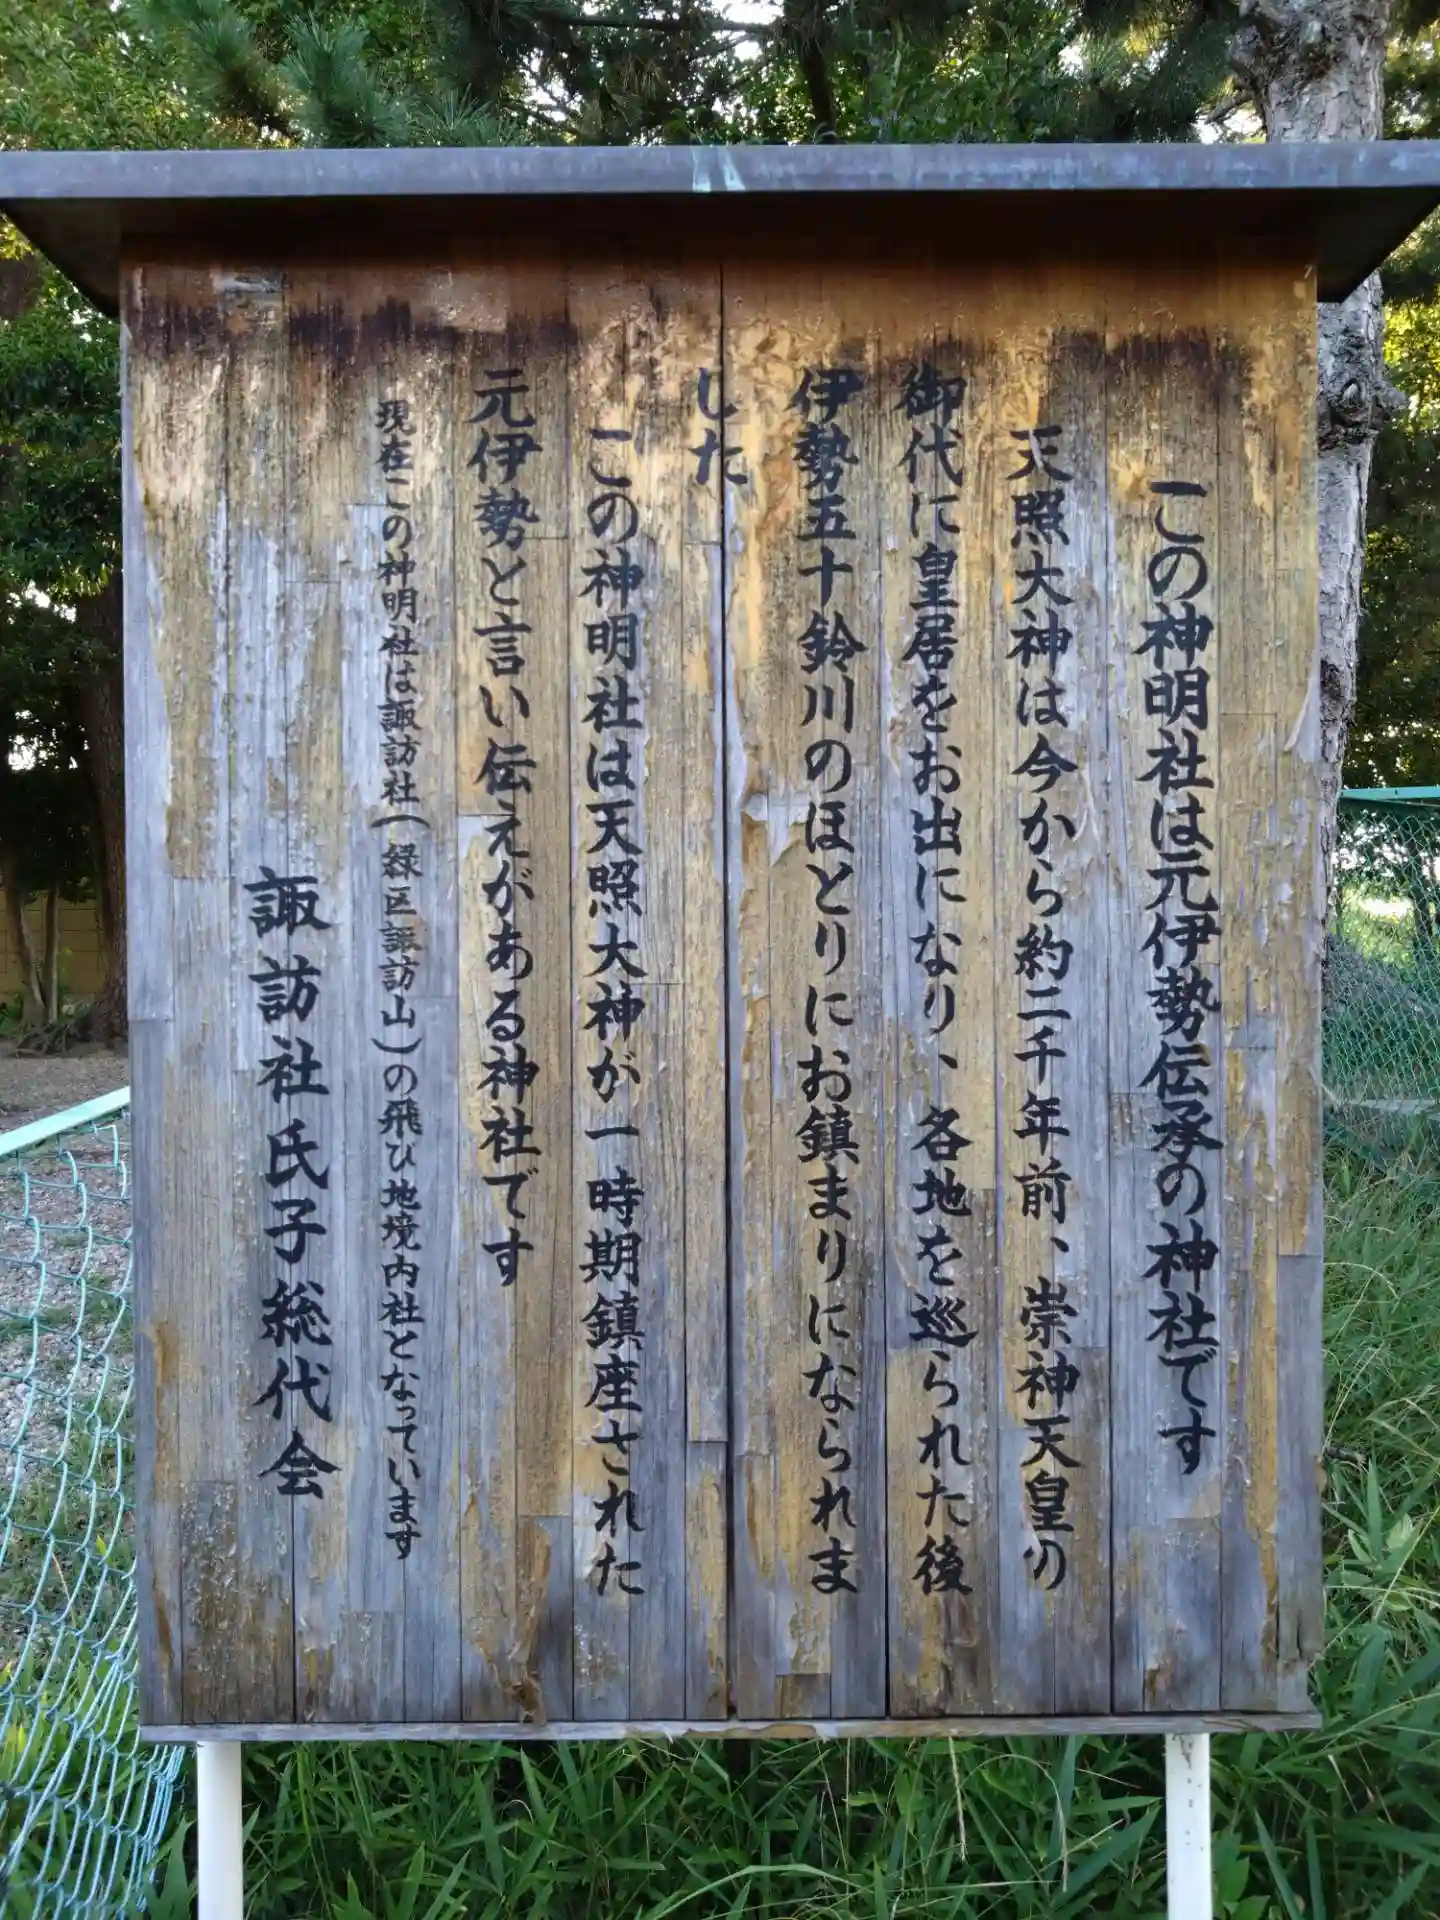 この神明社は元伊勢伝承の神社です
天照大神は今から約二千年前、崇神天皇の
御代に皇居をお出になり、各地を巡られた後
伊勢五十鈴川のほとりにお鎮まりになられま
した
この神明社は天照大神が一時期鎮座された
元伊勢と言い伝えがある神社です
現在この神明社は諏訪社(緑区諏訪山)の飛ひ地境内社となっています
諏訪社氏子総代会